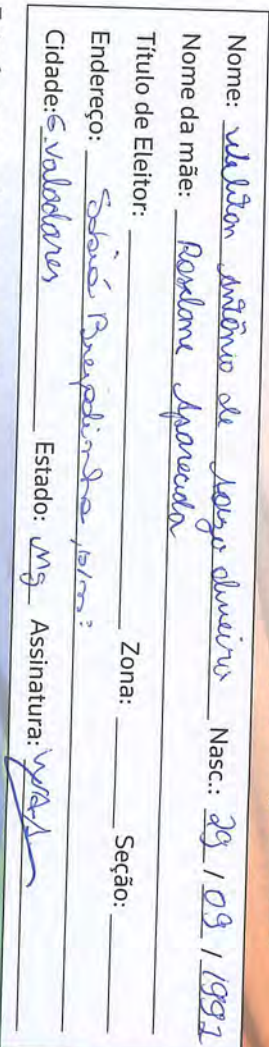 Nome: Waliton Antônio de Souza Oliveira Nasc.: 29 / 09 / 1992
Nome da mãe: Roselane Aparecida
Título de Eleitor: Zona: Seção:
Endereço: Brejadinha, s/nº
Cidade: G. Valadares Estado: Mg Assinatura: